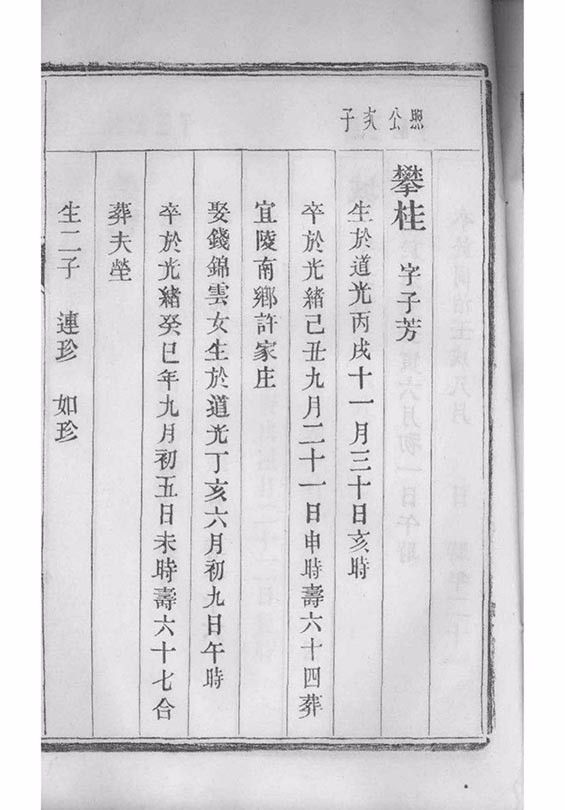 照公次子
攀桂 字子芳
生於道光丙戌十一月三十日亥時
卒於光緒己丑九月二十一日申時壽六十四葬
宜陵南鄉許家庄
娶錢錦雲女生於道光丁亥六月初九日午時
卒於光緒癸巳年九月初五日未時壽六十七合
葬夫塋
生二子 連珍 如珍